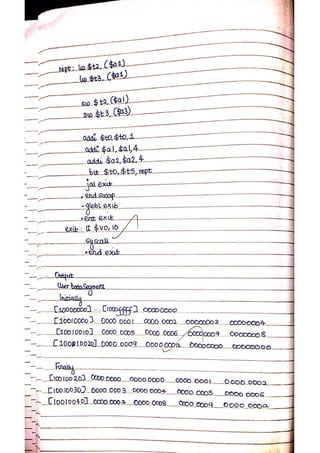 rept: lw $t2, ($a2)
lw $t3, ($a1)
sw $t2, ($a1)
sw $t3, ($a3)
addi $t0, $t0, 1
addi $a1, $a1, 4
addi $a2, $a2, 4
blt $t0, $t5, rept
jal exit
.end swap
.globl exit
.ent exit
exit: li $v0, 10
syscall
.end exit
Output
User Data Segment
Initially
[10000000] [1000ffff] 00000000
[10010000] 0000 0001 0000 0002 00000003 00000004
[10010010] 0000 0005 0000 0006 00000007 00000008
[10010020] 0000 0009 0000000a 00000000 00000000
Finally
[10010020] 0000 0000 0000 0000 0000 0001 0000 0002
[10010030] 0000 0003 0000 0004 0000 0005 0000 0006
[10010040] 0000 0007 0000 0008 0000 0009 0000 000a